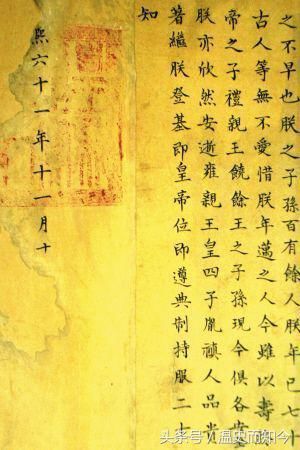 之不早也朕之子孫百有餘人朕年已七十
古人等無不愛惜朕年邁之人今雖以壽
帝之子禮親王饒餘王之子孫現今俱各安
朕亦欣然安逝雍親王皇四子胤禛人品貴
著繼朕登基即皇帝位即遵典制持服二十
知
熙六十一年十一月十
头条号 / 温史而知今